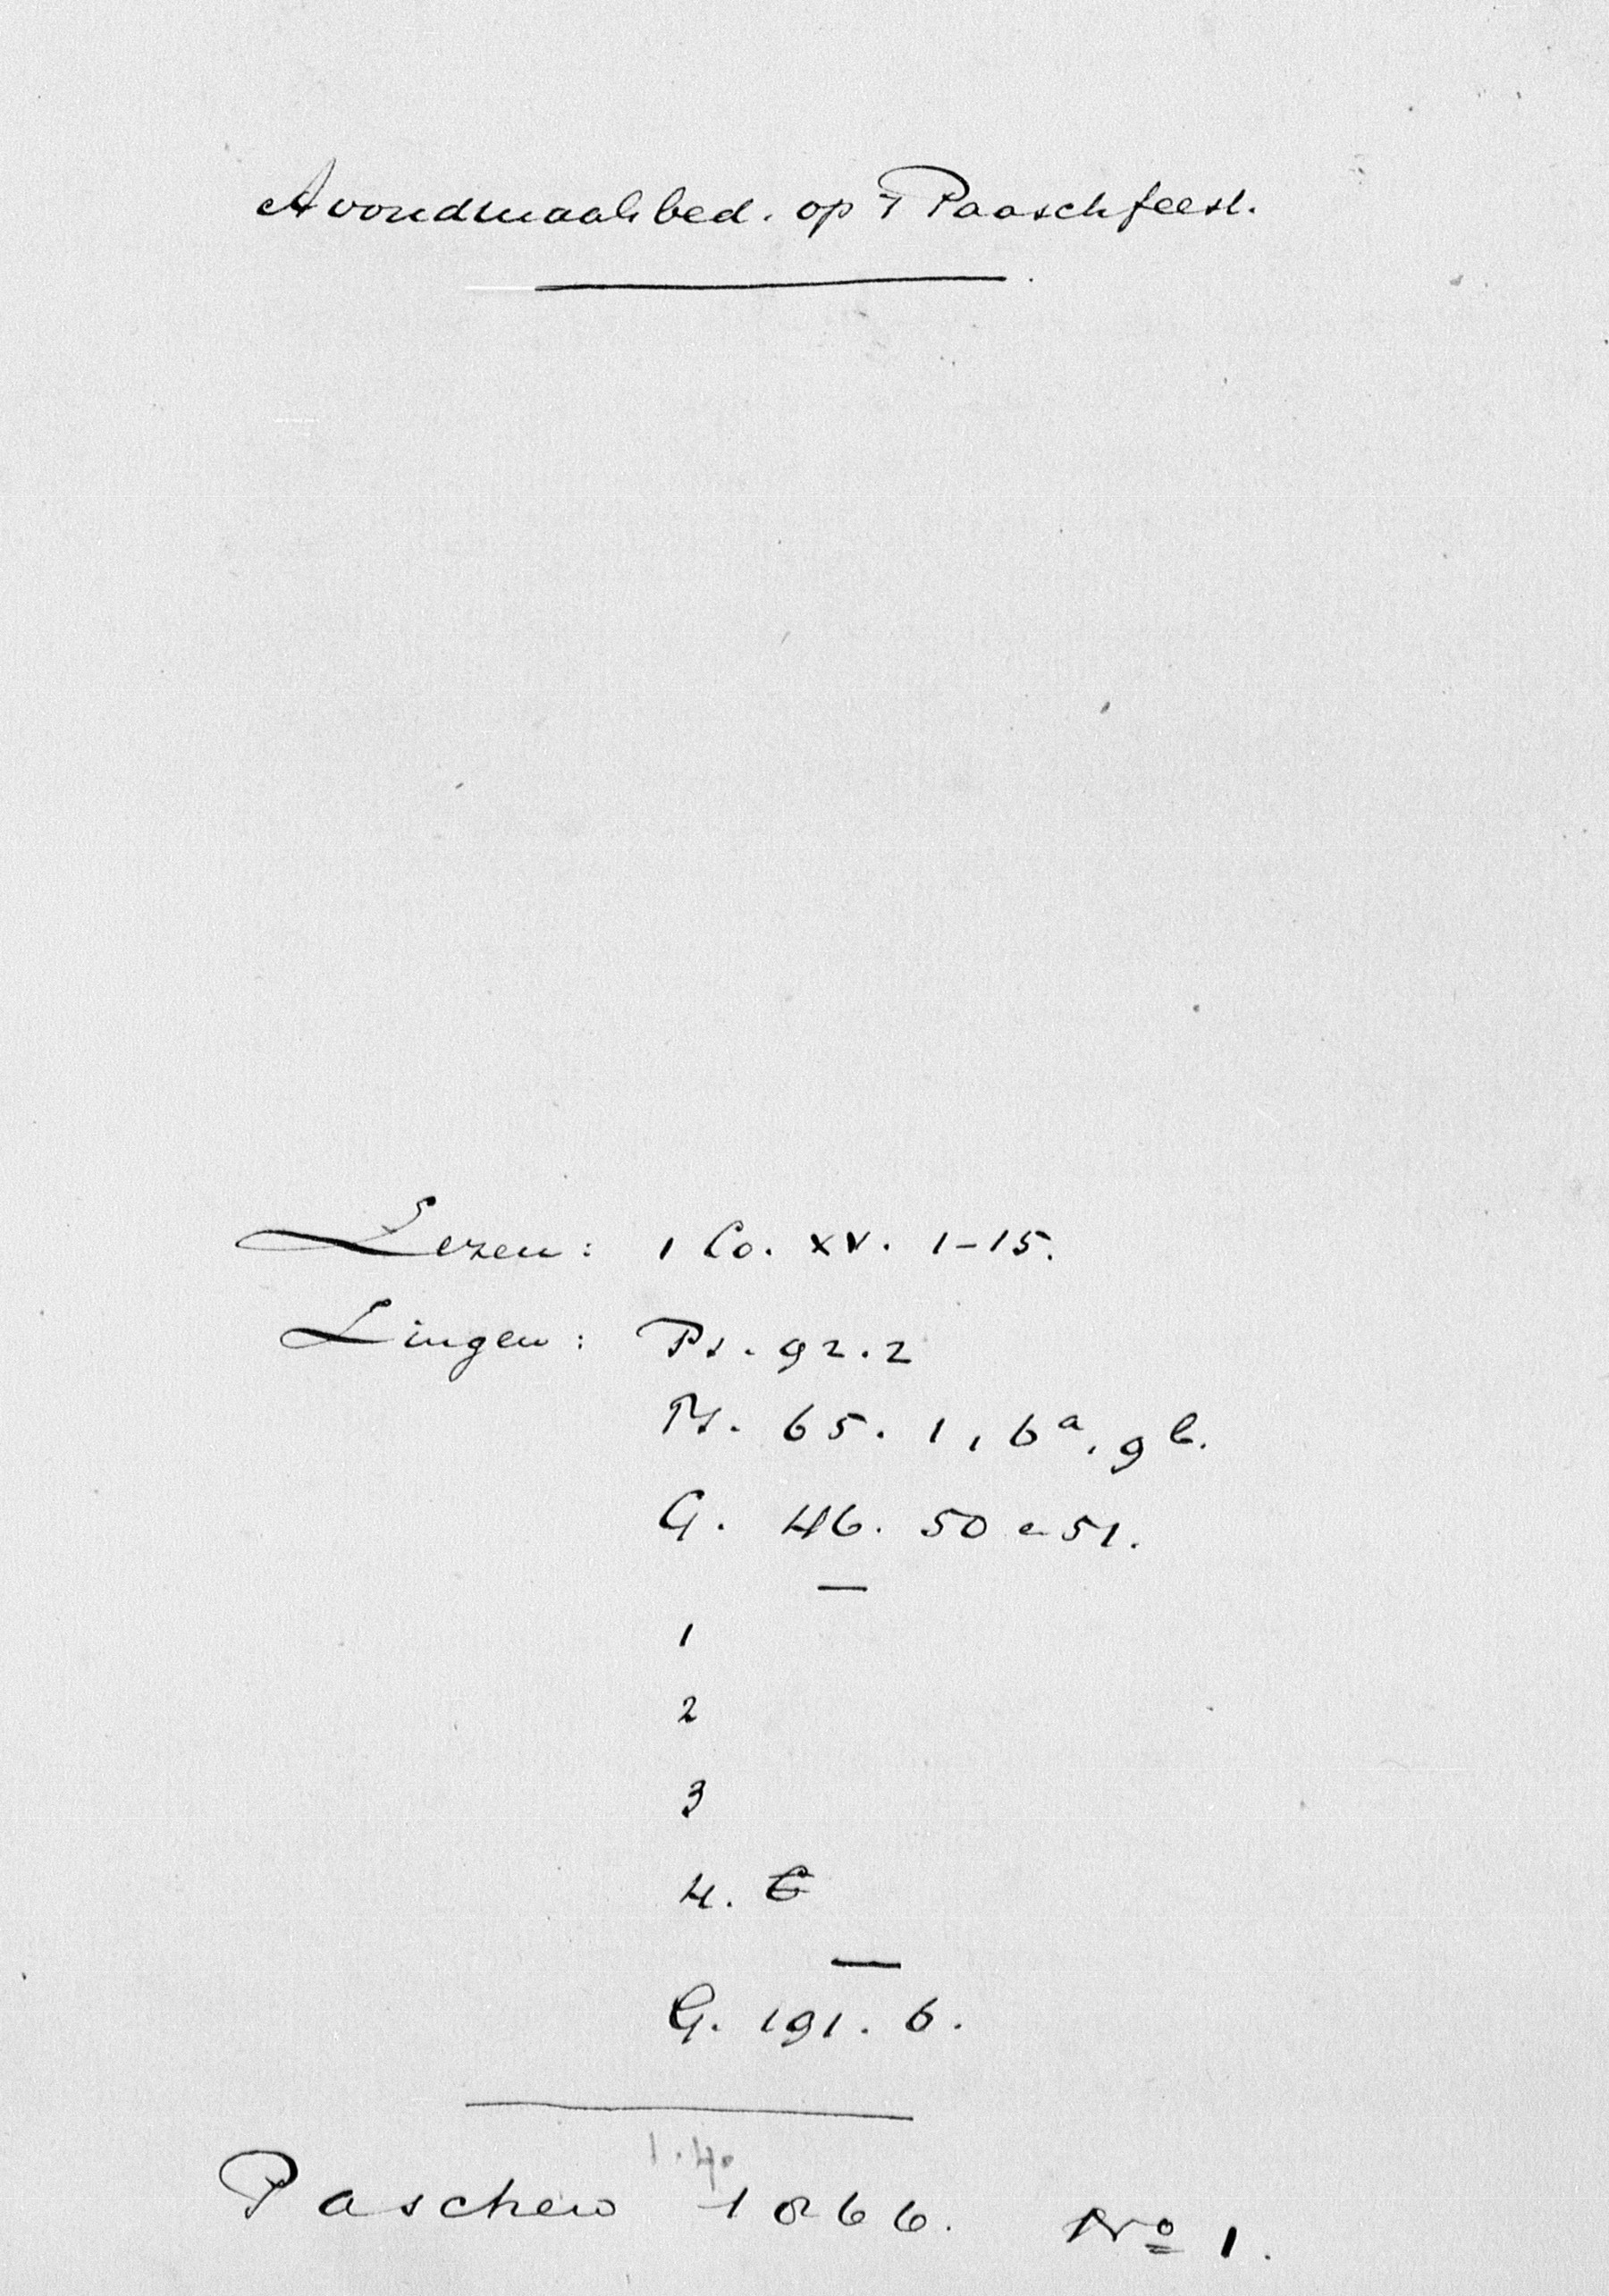 Avondmaalsbed. op 't Paaschfeest.
Lezen: 1 Co. XV. 1-15.
Zingen: Ps. 92.2
Ps. 65. 1, 6a, 9b.
G. 46. 50 e 51.
1
2
3
4. G
G. 191. 6.
1.4.
Paschen 1866. No 1.